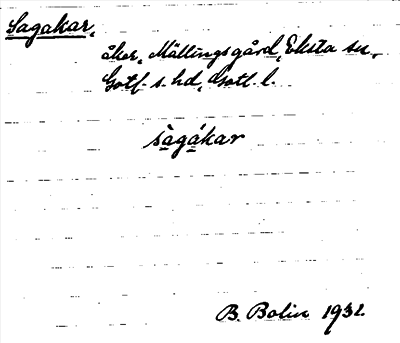 Sagakar,
åker, Mällingsgård, Eksta sn,
Gotl. s. hd, Gotl. l.
sàgákar
B. Bolin 1932